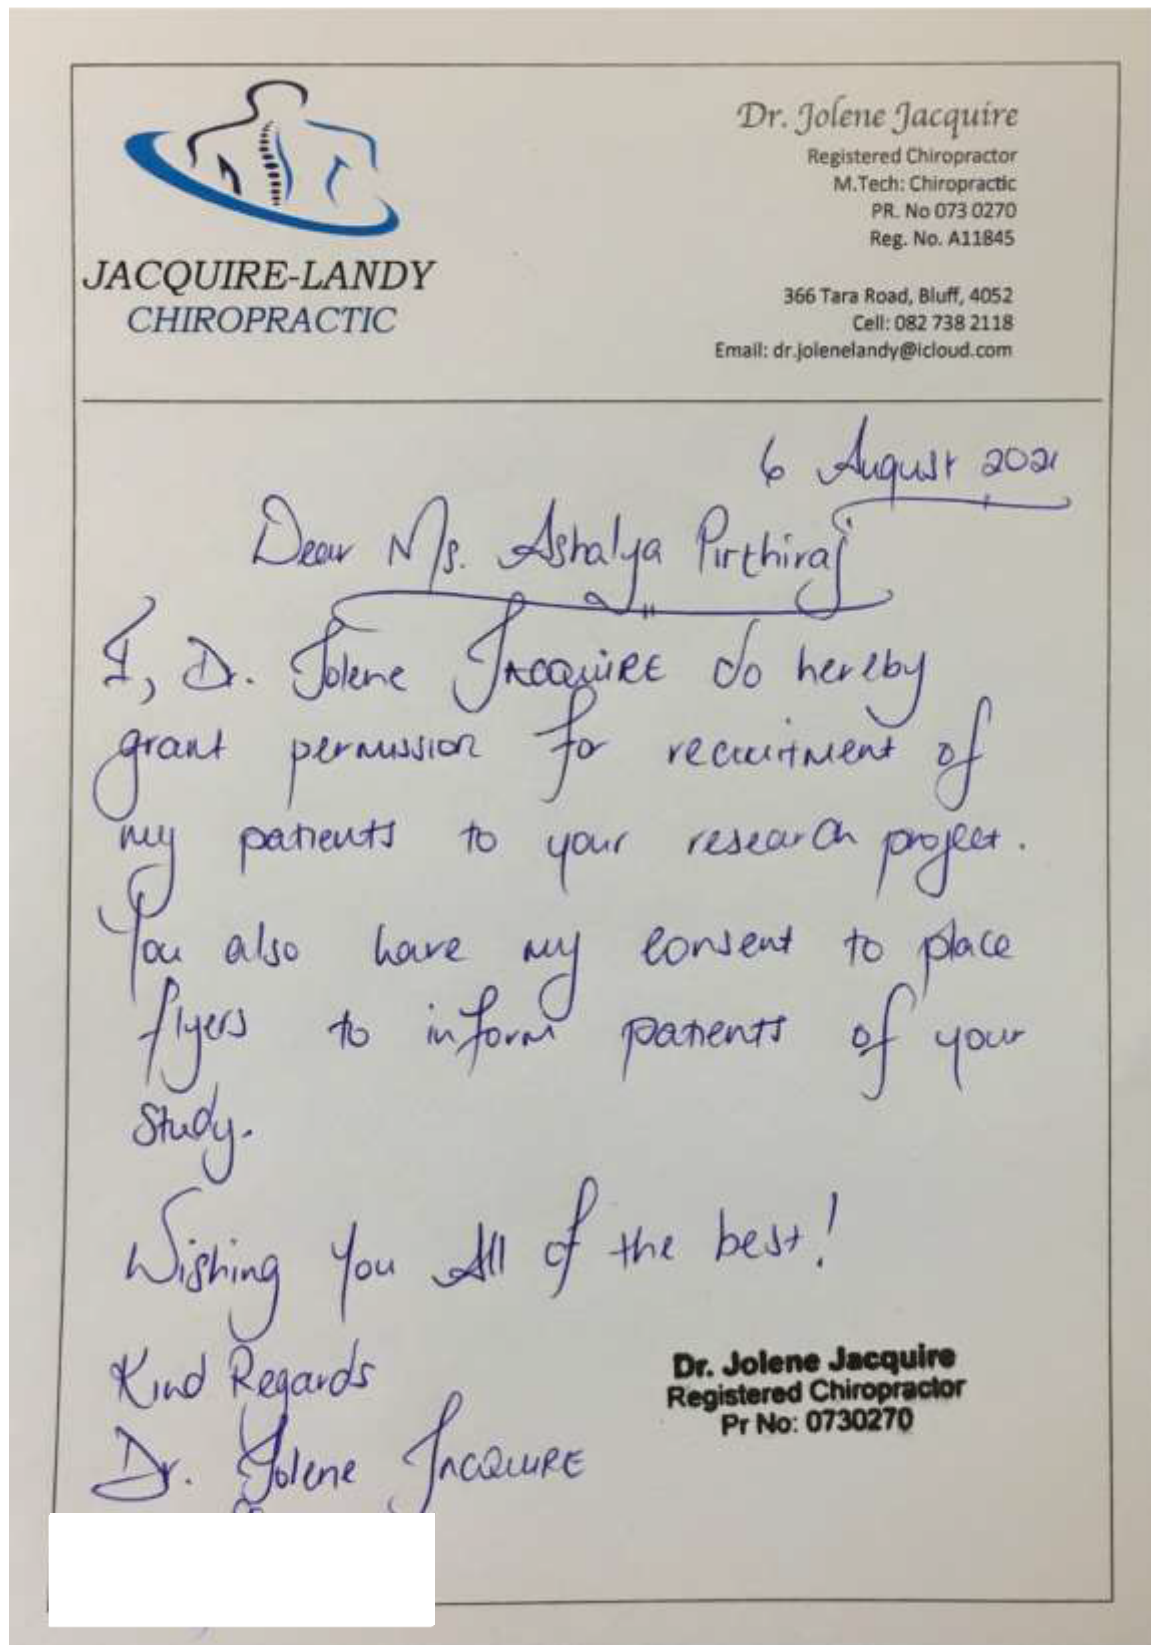 JACQUIRE-LANDY
CHIROPRACTIC
Dr. Jolene Jacquire
Registered Chiropractor
M.Tech: Chiropractic
PR. No 073 0270
Reg. No. A11845
366 Tara Road, Bluff, 4052
Cell: 082 738 2118
Email: dr.jolenelandy@icloud.com
6 August 2021
Dear Ms. Ashalya Pirthiraj
I, Dr. Jolene JACQUIRE do hereby
grant permission for recruitment of
my patients to your research project.
You also have my consent to place
flyers to inform patients of your
study.
Wishing you All of the best!
Kind Regards
Dr. Jolene JACQUIRE
Dr. Jolene Jacquire
Registered Chiropractor
Pr No: 0730270